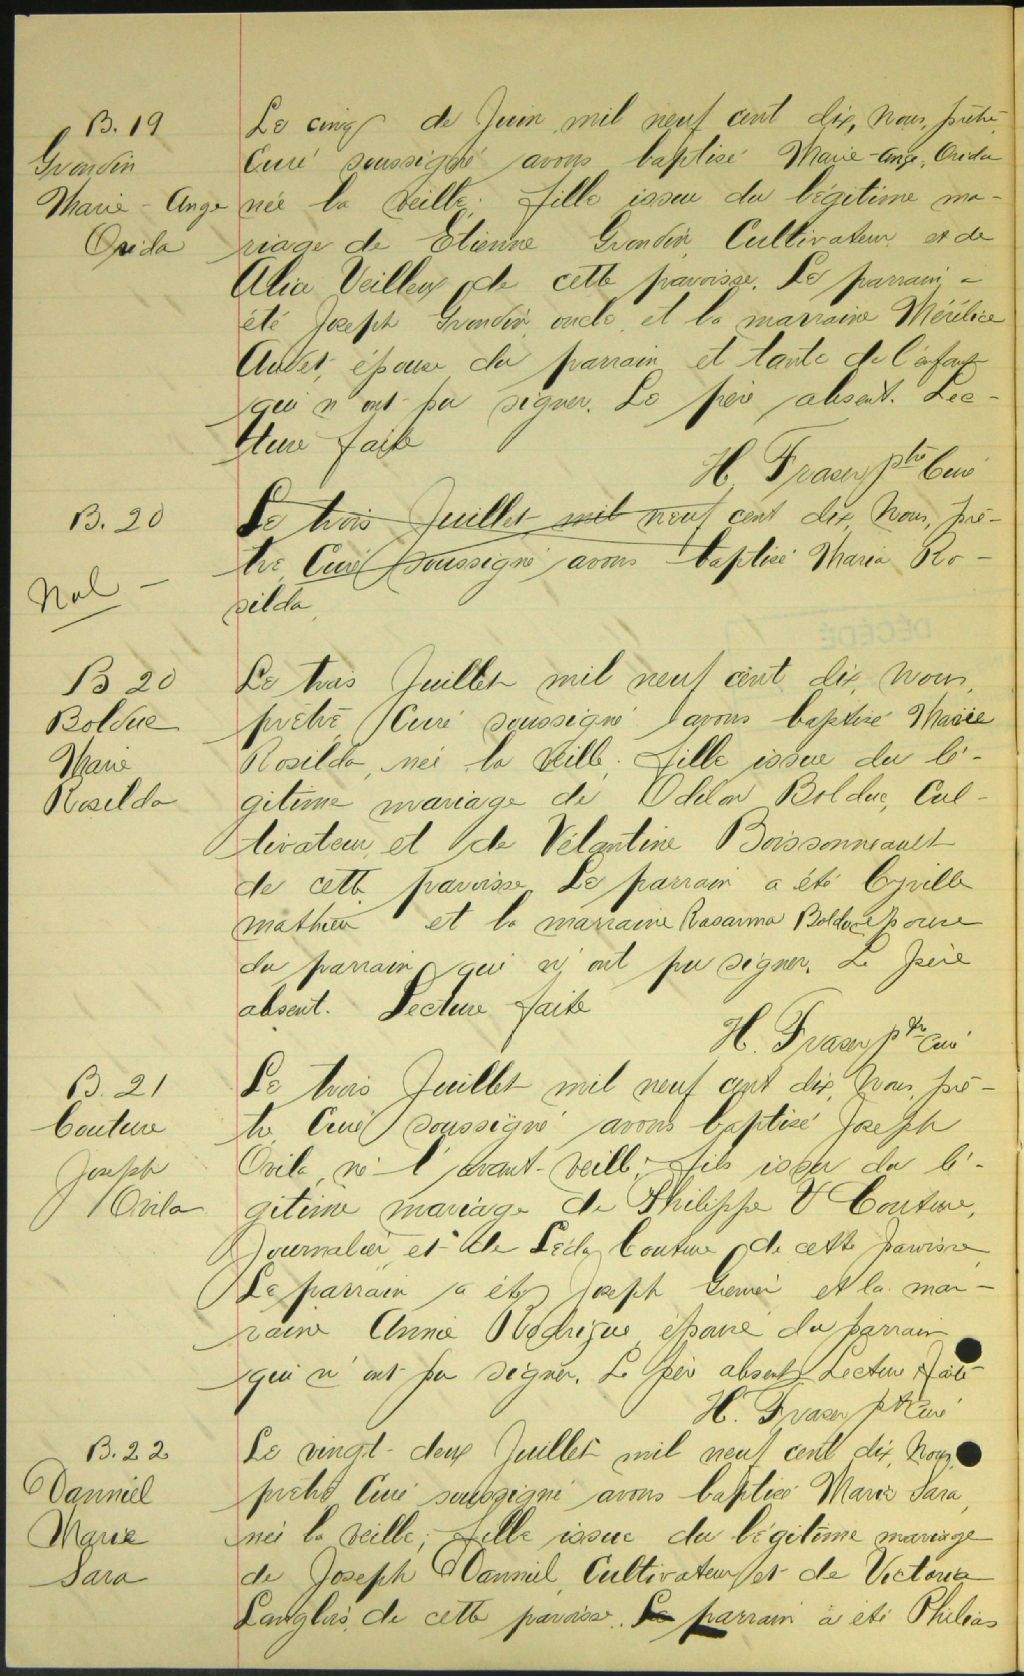 B. 19
Grondin
Marie - Ange
Orida
Le cinq de Juin mil neuf cent dix, Nous, prêtre
Curé soussigné avons baptisé Marie-Ange, Orida
née la veille; fille issue du légitime ma-
riage de Etienne Grondin Cultivateur et de
Alia Veilleux de cette paroisse. Le parrain a
été Joseph Grondin oncle et la marraine
Audet, épouse du parrain et tante de l'enfant
qui n'ont pu signer. Le père absent. Lec-
ture faite
H. Fraser ptre Curé
B. 20
Nul -
Le trois Juillet mil neuf cent dix, Nous, prê-
tre Curé soussigné avons baptisé Maria Ro-
silda
DÉCÉDÉ
B 20
Bolduc
Marie
Rosilda
Le trois Juillet mil neuf cent dix, Nous,
prêtre Curé soussigné avons baptisé Marie
Rosilda, née la veille; fille issue du lé-
gitime mariage de Odilon Bolduc, Cul-
tivateur et de Vélantine Boissonneault
de cette paroisse. Le parrain a été Cyrille
mathieu et la marraine Rosanna Bolduc épouse
du parrain qui n'ont pu signer. Le père
absent. Lecture faite
H. Fraser ptre Curé
B. 21
Couture
Joseph
Ovila
Le trois Juillet mil neuf cent dix, Nous, prê-
tre Curé soussigné avons baptisé Joseph
Ovila, né l'avant-veille; fils issu du lé-
gitime mariage de Philippe V Couture,
Journalier et de Léda Couture de cette paroisse
Le parrain a été Joseph Grenier et la mar-
raine Annie Rodrigue, épouse du parrain
qui n'ont pu signer. Le père absent. Lecture faite
H. Fraser ptre Curé
B. 22
Danniel
Marie
Sara
Le vingt-deux Juillet mil neuf cent dix, Nous,
prêtre Curé soussigné avons baptisé Marie Sara,
née la veille; fille issue du légitime mariage
de Joseph Danniel, Cultivateur et de Victoria
Langlois, de cette paroisse. Le parrain a été Philias